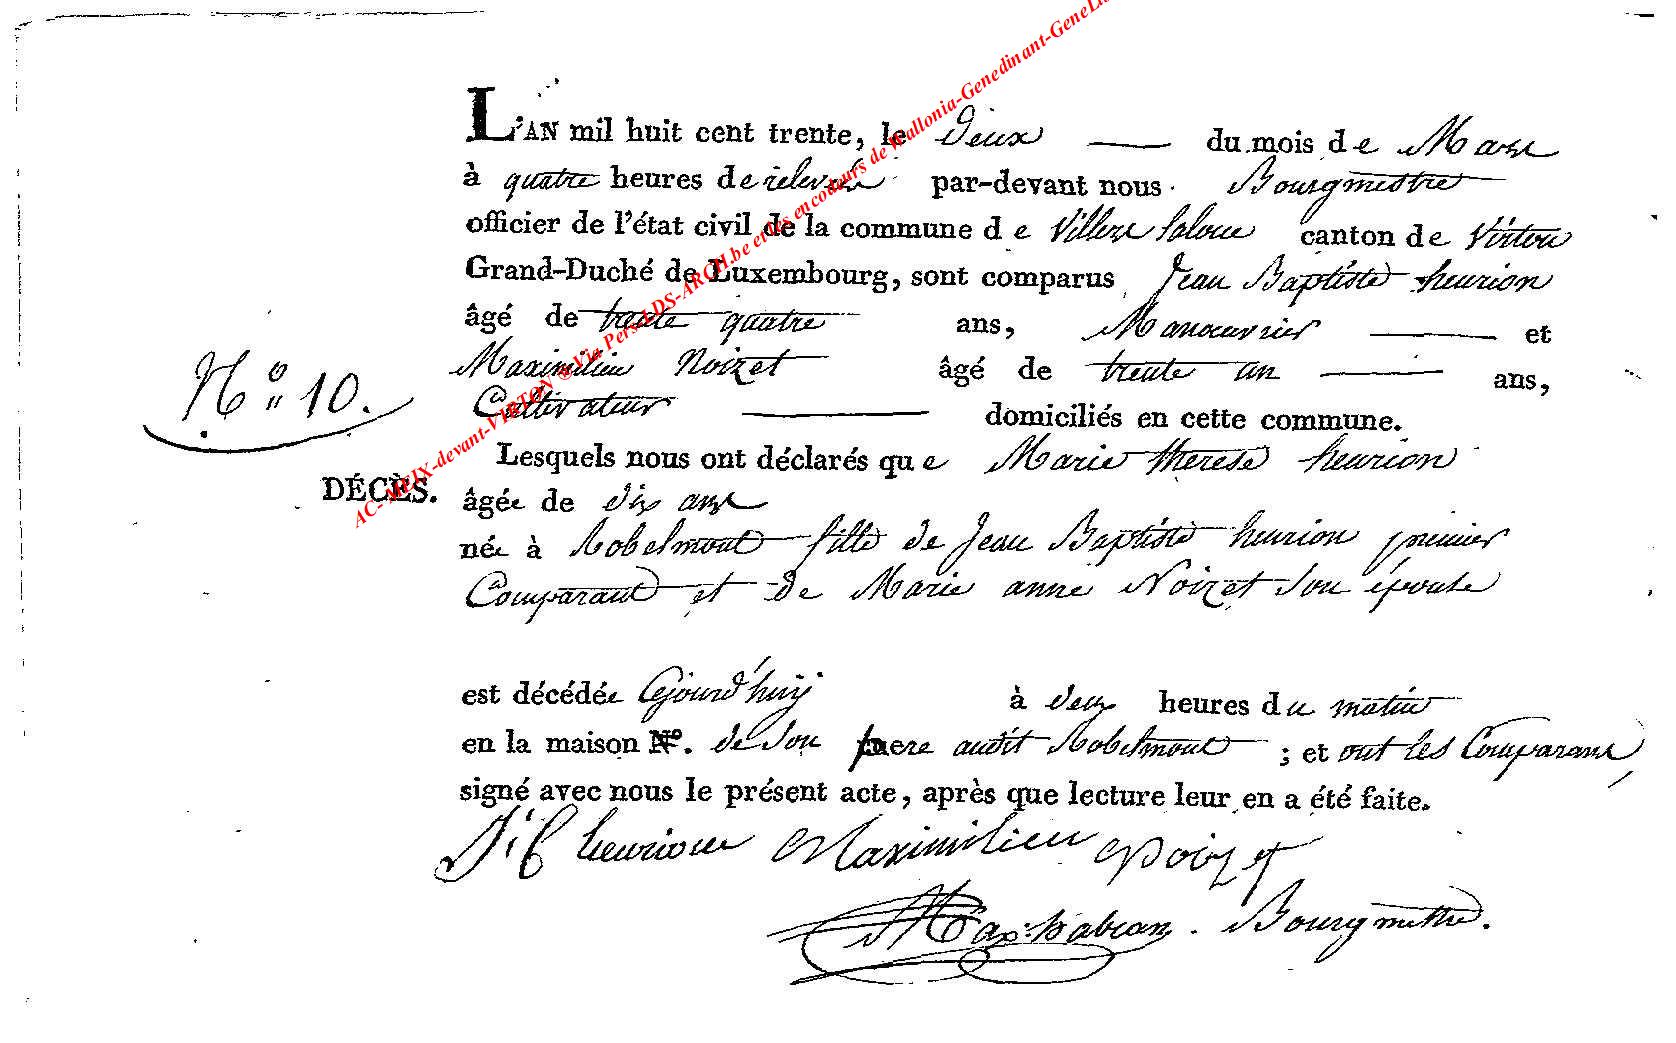 L'AN mil huit cent trente, le Deux du mois de Mars
à quatre heures de relevée par-devant nous Bourgmestre
officier de l'état civil de la commune de Villers laloue canton de Virton
Grand-Duché de Luxembourg, sont comparus Jean Baptiste henrion
âgé de trente quatre ans, Manoeuvrier et
Maximilien Noizet âgé de trente un ans,
Cultivateur domiciliés en cette commune.
N° 10.
Lesquels nous ont déclarés que Marie therese henrion
DÉCÈS.
âgée de dix ans
née à Robelmont fille de Jean Baptiste henrion premier
Comparant et de Marie anne Noizet Son épouse
est décédée Cejourd'huy à deux heures du matin
en la maison N°. de Son pere audit Robelmont ; et ont les Comparans,
signé avec nous le présent acte, après que lecture leur en a été faite.
henrion Maximilien Noizet
Bourgmettre.
AC-MEIX-devant-VIRTON ® Via Pers-LDS-ARCH.be et les encodeurs de Wallonia-Genedinant-GeneLi